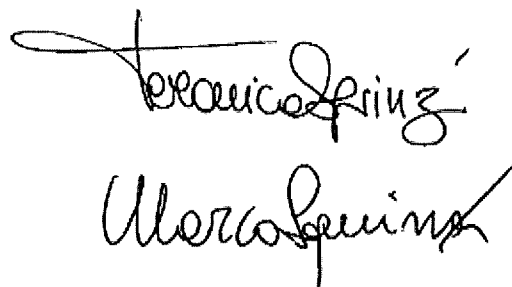 Veronica Squinzi
Marco Squinzi